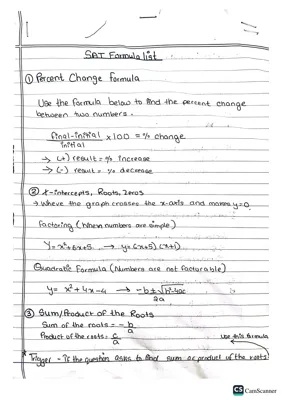 SAT Formula list
① Percent Change Formula
Use the formula below to find the percent change
between two numbers.
final-initial / initial x100 = % change
→ (+) result = % increase
→ (-) result = % decrease
② x-intercepts, Roots, Zeros
→ Where the graph crosses the x-axis and makes y=0.
Factoring (when numbers are simple)
Y = x²+6x+5 ... → y=(x+5)(x+1)
Quadratic Formula (Numbers are not factorable)
y= x²+4x-4 → -b±√b²-4ac / 2a
③ Sum/Product of the Roots
Sum of the roots = -b/a
Product of the roots = c/a
use this formula
* Trigger - if the question asks to find sum or product of the roots.
CS CamScanner